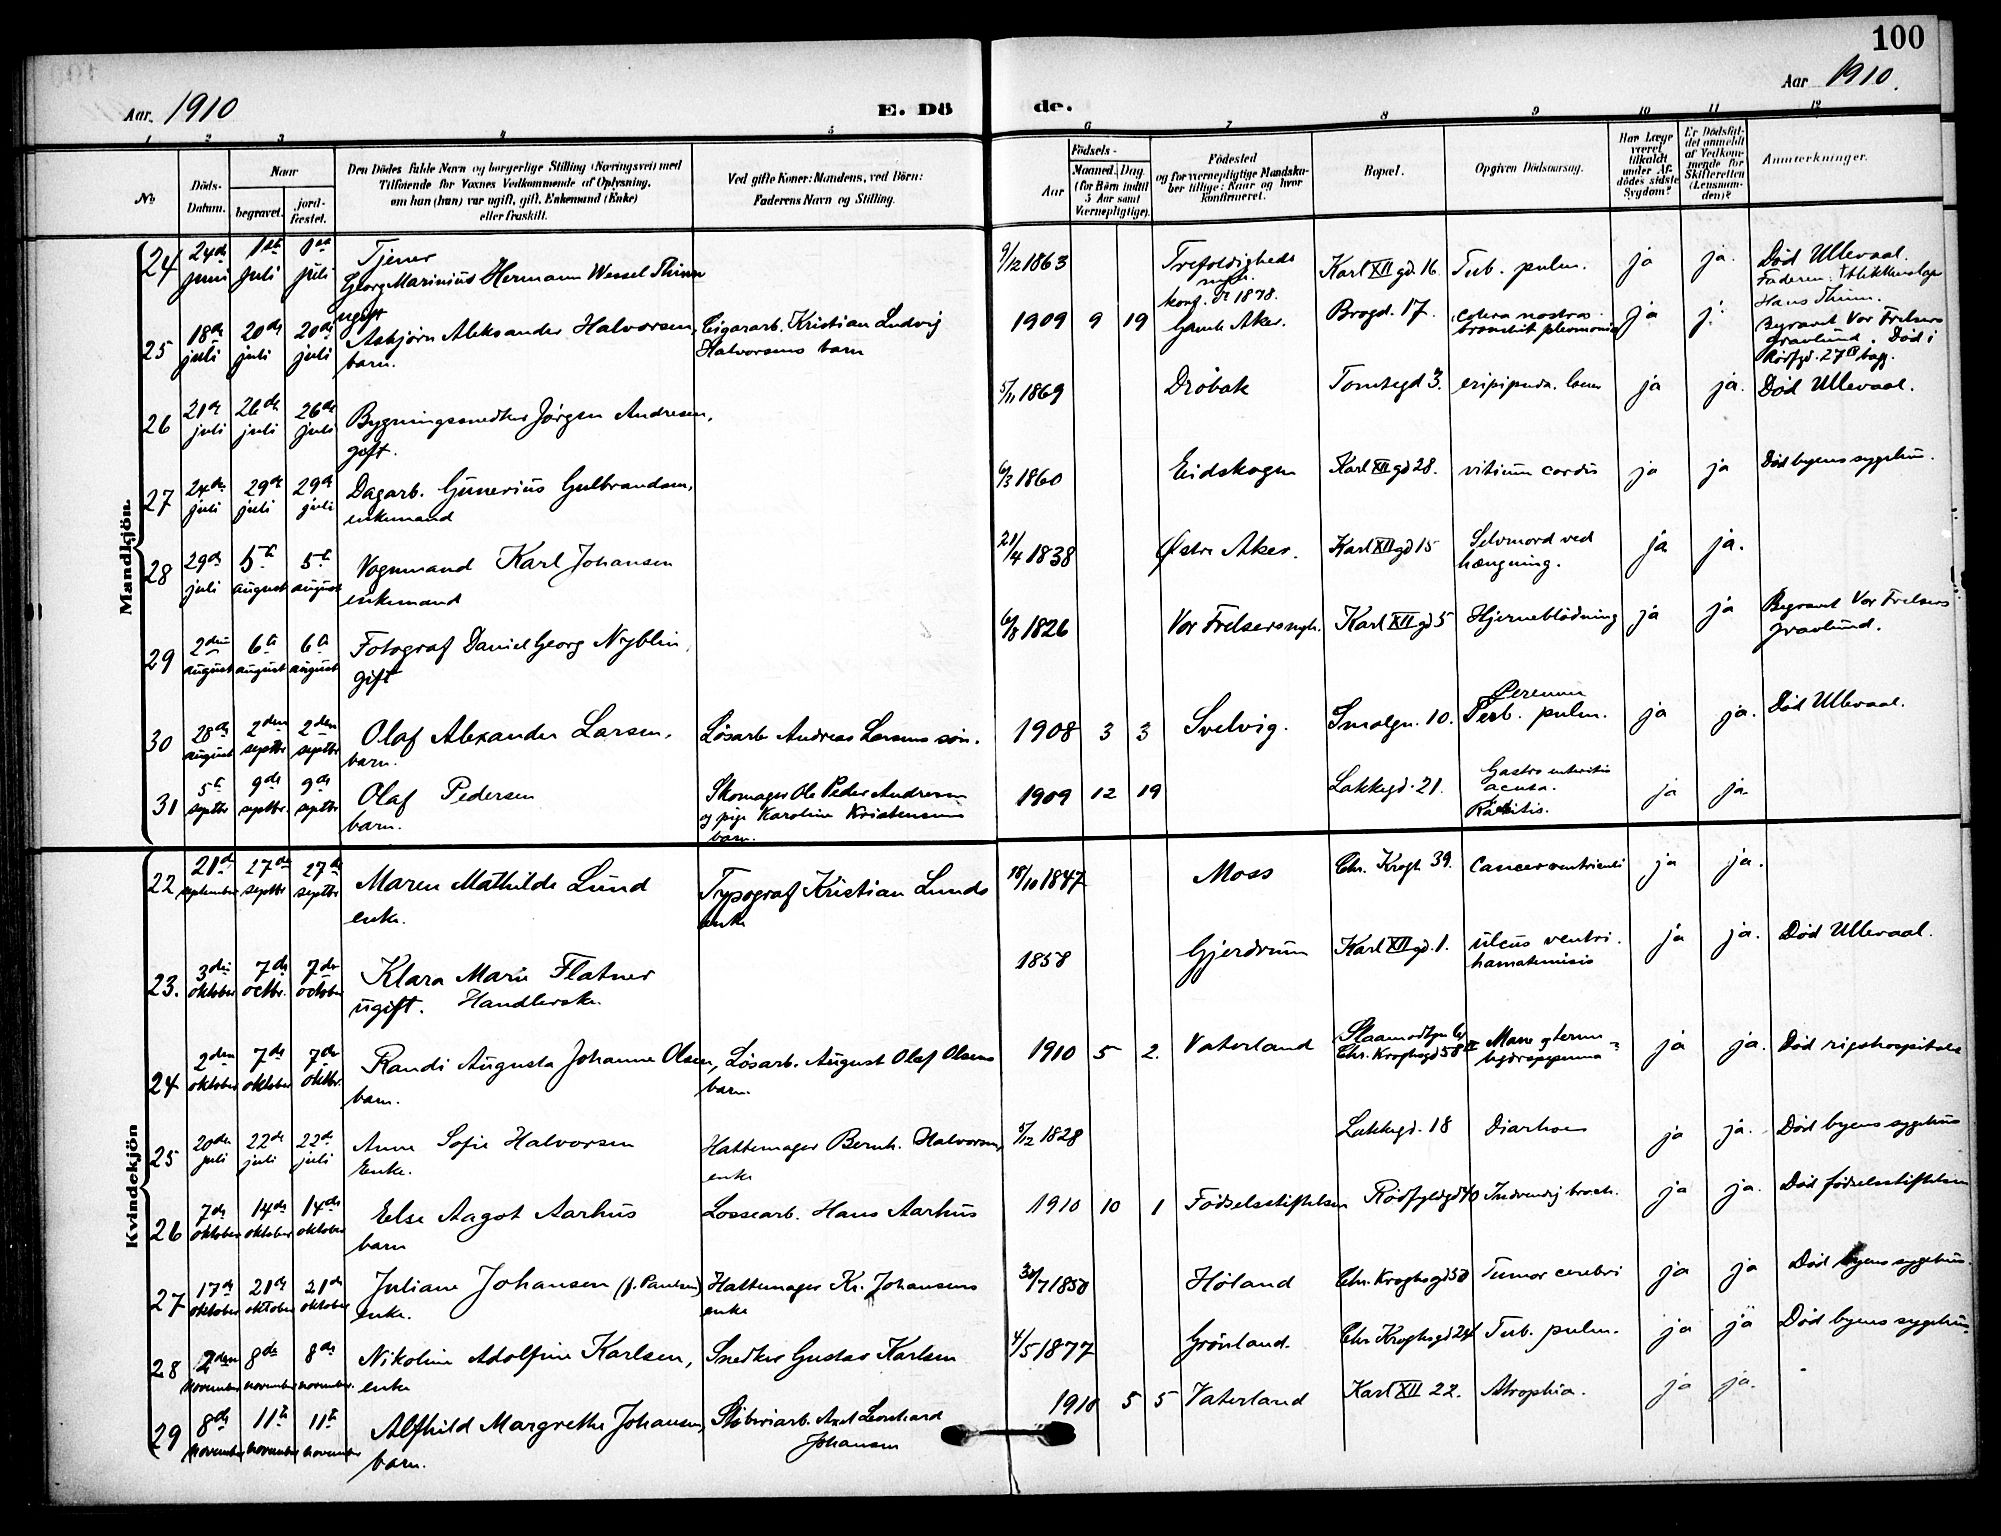 100
Aar. 1910
E. Dö de.
Aar 1910.
1 2 3 4 5 6 7 8 9 10 11 12
No
Döds-Datum.
Naar
begravet.
jord-fæstet.
Den Dödes fulde Navn og borgerlige Stilling (Næringsvei) med
Tilföiende for Voxnes Vedkommende af Oplysning,
om han (hun) var ugift, gift, Enkemand (Enke)
eller fraskilt.
Ved gifte Koner: Mandens, ved Börn:
Faderens Navn og Stilling.
Födsels-
Aar
Maaned. Dag
(for Börn indtil
5 Aar samt
Værnepligtige).
Födested
og for værnepligtige Mandska-
ber tillige: Naar og hvor
konfirmeret.
Bopæl.
Opgiven Dödsaarsag.
Har Læge
været
tilkaldt
under Af-
dödes sidste
Sygdom?
Er Dödsfal-
det anmeldt
af Vedkom-
mende for
Skifteretten
(Lensman-
den)?
Anmerkninger.
Mandkjön.
24 24de juni 1ste juli 1ste juli Tjener
Georg Marinius Hermann Wessel Thinn
ugift
9/12 1863 Trefoldigheds
konf. 1878. Karl XII gd. 16. Tub. pulm. ja ja. Död Ullevaal.
Faderen:
Hans Thinn.
25 18de juli 20de juli 20de juli Asbjörn Aleksander Halvorsen,
barn.
Cigararb. Kristian Ludvig
Halvorsens barn
1909 9 19 Gamle Aker. Brogd. 17. colera nostras
ja j. Begravet Vor Frelsers
gravlund. Död i
Rödfgd. 27
26 21de juli 26de juli 26de juli Bygningssnedker Jörgen Andresen,
gift.
5/11 1869 Dröbak Tomtegd 3. ja ja. Död Ullevaal.
27 24de juli 29de juli 29de juli Dagarb. Gunerius Gulbrandsen,
enkemand
6/3 1860 Eidskogn Karl XII gd 28. vitium cordis ja ja Död byens sygehus.
28 29de juli 5te august 5te august Vognmand Karl Johansen
enkemand
21/4 1838 Östre Aker. Karl XII gd 15 Selvmord ved
hængning. ja ja.
29 2den august 6te august 6te august Fotograf Daniel Georg Nyblin,
gift
6/8 1826 Vor Frelsers mgh. Karl XII gd 5 Hjerneblödning ja ja Begravet Vor Frelsers
gravlund.
30 28de august 2den septbr 2den septbr Olaf Alexander Larsen,
barn.
Løsarb Andreas Larsens søn.
1908 3 3 Svelvig. Smalgn. 10. pulm. ja ja. Död Ullevaal.
31 5te septbr 9de septbr. 9de septbr Olaf Pedersen
barn.
Skomager Ole Peder Andresen
og pige Karoline Kristensens
barn.
1909 12 19 Lakkegd. 21. Gastro enteritis
acuta.
Rakitis. ja ja.
Kvindekjön
22 21de september 27de septbr 27de septbr Maren Mathilde Lund
enke.
Typograf Kristian Lunds
enke
18/10 1847 Moss Chr. Krogh 39. Cancer ventriculi ja ja.
23. 3die oktober 7de octbr. 7de october Klara Marie Flatner
ugift. Handlerske.
1858 Gjerdrum Karl XII gd. 1. ulcus ventri.
hæmatemisis ja ja. Död Ullevaal.
24 2den oktober 7de oktober 7de oktbr. Randi Augusta Johanne Olsen,
barn.
Løsarb. August Olaf Olsens
barn.
1910 5 2. Vaterland
Chr. Kroghsgd 58 ja ja. Död rigshospitalet
25 20de juli 22de juli 22de juli Anne Sofie Halvorsen
Enke.
Hattemager Bernh. Halvorsens
enke
5/12 1828 Lakkegd. 18 Diarhoe ja ja. Död byens sygehus
26 7de oktober 14de oktober 14de oktober Else Aagot Aarhus
barn
Lossearb. Hans Aarhus
1910 10 1 Födselsstiftelsen Rödfyldgd 40 Indvendig ja ja. Död födselsstiftelsen
27 17de oktober 21de oktober 21de oktober Juliane Johansen (f. Paulsen)
enke.
Hattemager Kr. Johansens
enke
30/7 1850 Höland Chr. Kroghsgd 50 Tumor cerebri ja ja Död byens sygehus.
28 2den november 8de november 8de november. Nikoline Adolfine Karlsen,
enke
Snedker Gustav Karlsen
4/5 1877 Grönland. Chr Kroghsgd 24 Tub. pulm. ja ja Död byens sygehus.
29 8de november 11te november 11te november Alfhild Margrethe Johansen,
barn.
Støberiarb. Axel Leonhard
Johansen
1910 5 5 Vaterland Karl XII 22. Atrophia. ja ja.